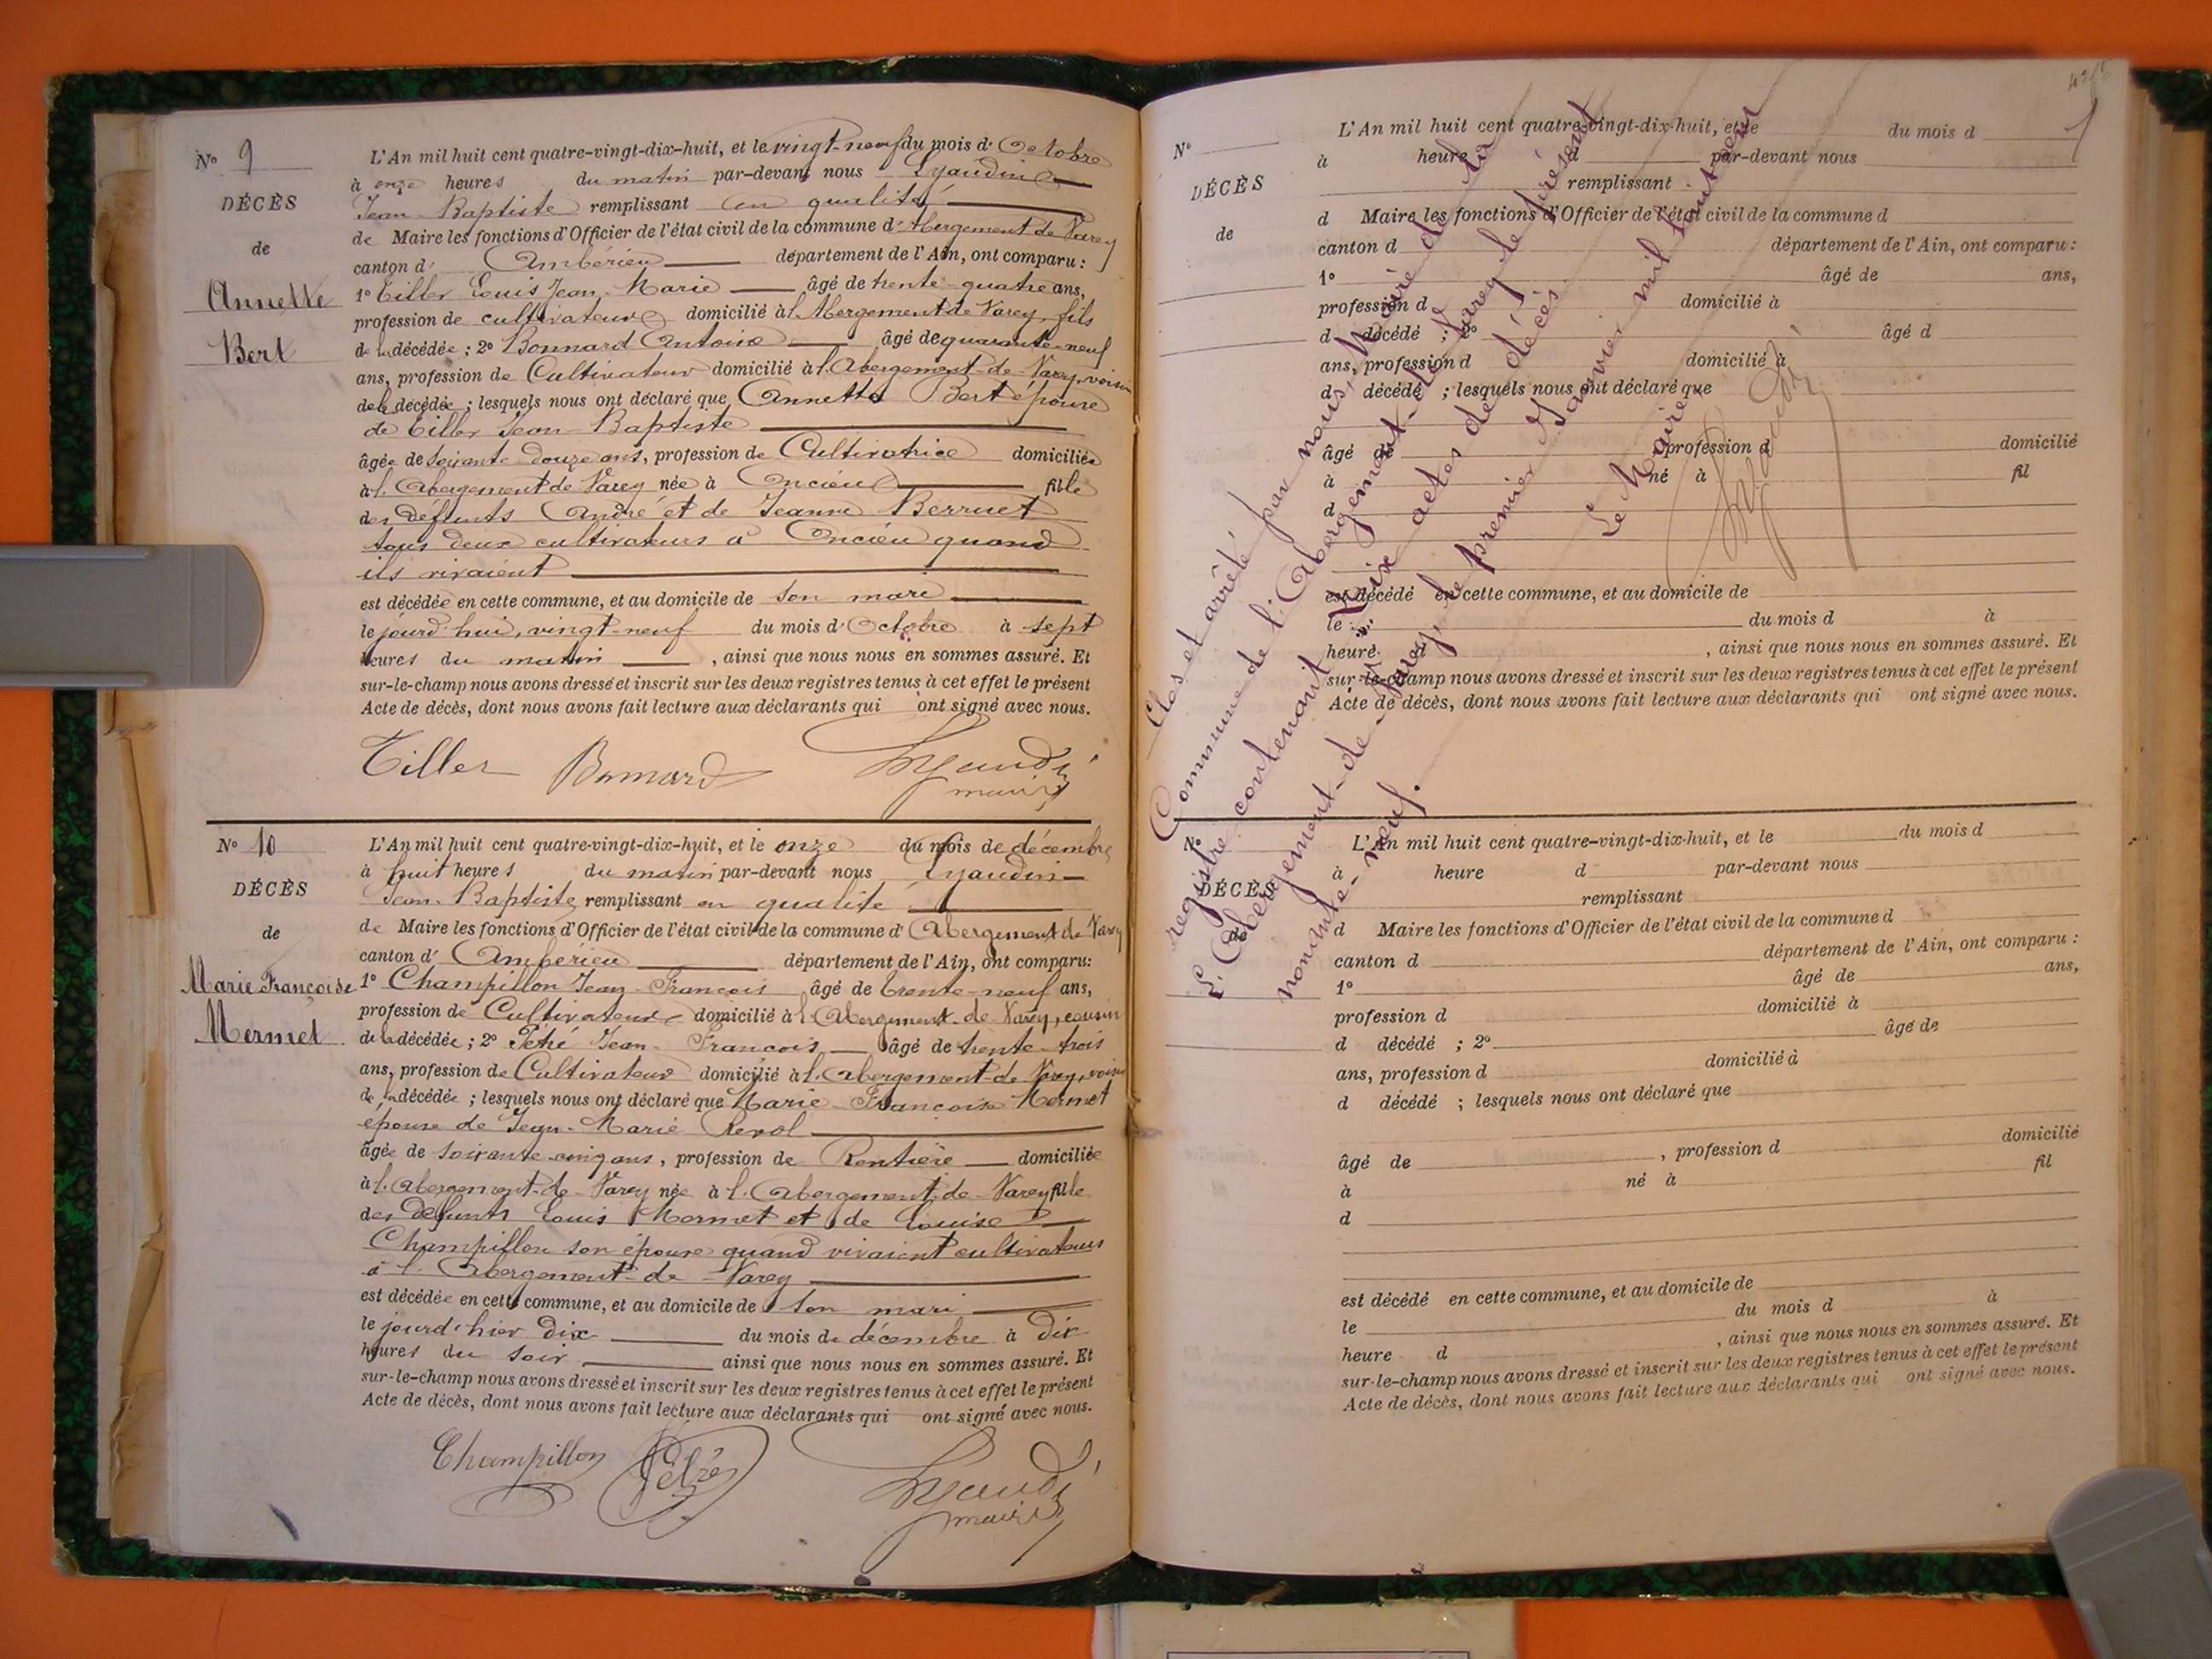 N° 9
DÉCÈS
de
Annette
Bert
L'An mil huit cent quatre-vingt-dix-huit, et le vingt-neuf du mois d'Octobre
à onze heures du matin par-devant nous Lyaudin
Jean-Baptiste remplissant en qualité
de Maire les fonctions d'Officier de l'état civil de la commune d'Abergement de Varey
canton d'Ambérieu département de l'Ain, ont comparu :
1° Tiller Louis Jean-Marie âgé de trente-quatre ans,
profession de cultivateur domicilié à l'Abergement de Varey, fils
de la décédée ; 2° Bonnard Antoine âgé de quarante-neuf
ans, profession de Cultivateur domicilié à l'Abergement-de-Varey, voisin
de la décédée ; lesquels nous ont déclaré que Annette Bert épouse
de Tiller Jean-Baptiste
âgée de soixante douze ans, profession de Cultivatrice domiciliée
à l'Abergement de Varey née à Oncieu fille
des défunts André et de Jeanne Berruet
tous deux cultivateurs à Oncieu quand
ils vivaient
est décédée en cette commune, et au domicile de son mari
le jourd'hui, vingt-neuf du mois d'Octobre à sept
heures du matin , ainsi que nous nous en sommes assuré. Et
sur-le-champ nous avons dressé et inscrit sur les deux registres tenus à cet effet le présent
Acte de décès, dont nous avons fait lecture aux déclarants qui ont signé avec nous.
Tiller Bonnard Lyaudin
maire
N° 10
DÉCÈS
de
Marie Françoise
Mermet
L'An mil huit cent quatre-vingt-dix-huit, et le onze du mois de décembre
à huit heures du matin par-devant nous Lyaudin
Jean-Baptiste remplissant en qualité
de Maire les fonctions d'Officier de l'état civil de la commune d'Abergement de Varey
canton d'Ambérieu département de l'Ain, ont comparu :
1° Champillon Jean-François âgé de trente-neuf ans,
profession de Cultivateur domicilié à l'Abergement-de-Varey, cousin
de la décédée ; 2° Jean-François âgé de trente-trois
ans, profession de Cultivateur domicilié à l'Abergement-de-Varey, voisin
de la décédée ; lesquels nous ont déclaré que Marie-Françoise Mermet
épouse de Jean-Marie Revol
âgée de soixante-cinq ans, profession de Rentière domiciliée
à l'Abergement-de-Varey née à l'Abergement-de-Varey fille
des défunts Louis Mermet et de Louise
Champillon son épouse quand vivaient cultivateurs
à l'Abergement-de-Varey
est décédée en cette commune, et au domicile de son mari
le jourd'hier dix du mois de décembre à dix
heures du soir ainsi que nous nous en sommes assuré. Et
sur-le-champ nous avons dressé et inscrit sur les deux registres tenus à cet effet le présent
Acte de décès, dont nous avons fait lecture aux déclarants qui ont signé avec nous.
Champillon Lyaudin
maire
N°
DÉCÈS
de
L'An mil huit cent quatre-vingt-dix-huit, et le du mois d
à heure d par-devant nous
remplissant
d Maire les fonctions d'Officier de l'état civil de la commune d
canton d département de l'Ain, ont comparu :
1° âgé de ans,
profession d domicilié à
d décédé ; 2° âgé d
ans, profession d domicilié à
d décédé ; lesquels nous ont déclaré que
âgé de profession d domicilié
à né à fil
d
est décédé en cette commune, et au domicile de
le du mois d à
heure d , ainsi que nous nous en sommes assuré. Et
sur-le-champ nous avons dressé et inscrit sur les deux registres tenus à cet effet le présent
Acte de décès, dont nous avons fait lecture aux déclarants qui ont signé avec nous.
Clos et arrêté par nous, Maire de la
Commune de l'Abergement-de-Varey le présent
registre contenant dix actes de décès
L'Abergement-de-Varey, le premier Janvier mil huit cent
nonante-neuf.
Le Maire,
Lyaudin
N°
DÉCÈS
de
L'An mil huit cent quatre-vingt-dix-huit, et le du mois d
à heure d par-devant nous
remplissant
d Maire les fonctions d'Officier de l'état civil de la commune d
canton d département de l'Ain, ont comparu :
1° âgé de ans,
profession d domicilié à
d décédé ; 2° âgé de
ans, profession d domicilié à
d décédé ; lesquels nous ont déclaré que
âgé de , profession d domicilié
à né à fil
d
est décédé en cette commune, et au domicile de
le du mois d à
heure d , ainsi que nous nous en sommes assuré. Et
sur-le-champ nous avons dressé et inscrit sur les deux registres tenus à cet effet le présent
Acte de décès, dont nous avons fait lecture aux déclarants qui ont signé avec nous.